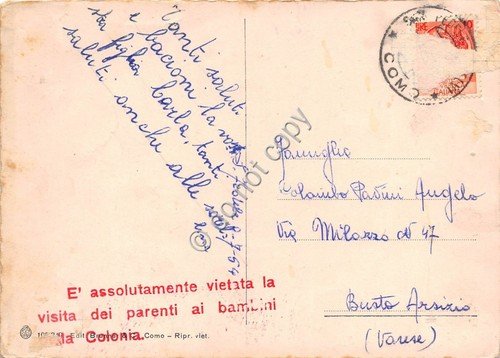 Tanti saluti
e bacioni la vo
stra figlia Carla, tanti
saluti anche alle
Famiglia
Colombo Pastini Angelo
Via Milazzo N 47
Busto Arsizio
(Varese)
COMO
E' assolutamente vietata la
visita dei parenti ai bambini
della Colonia.
Edit. Como - Ripr. viet.
copy